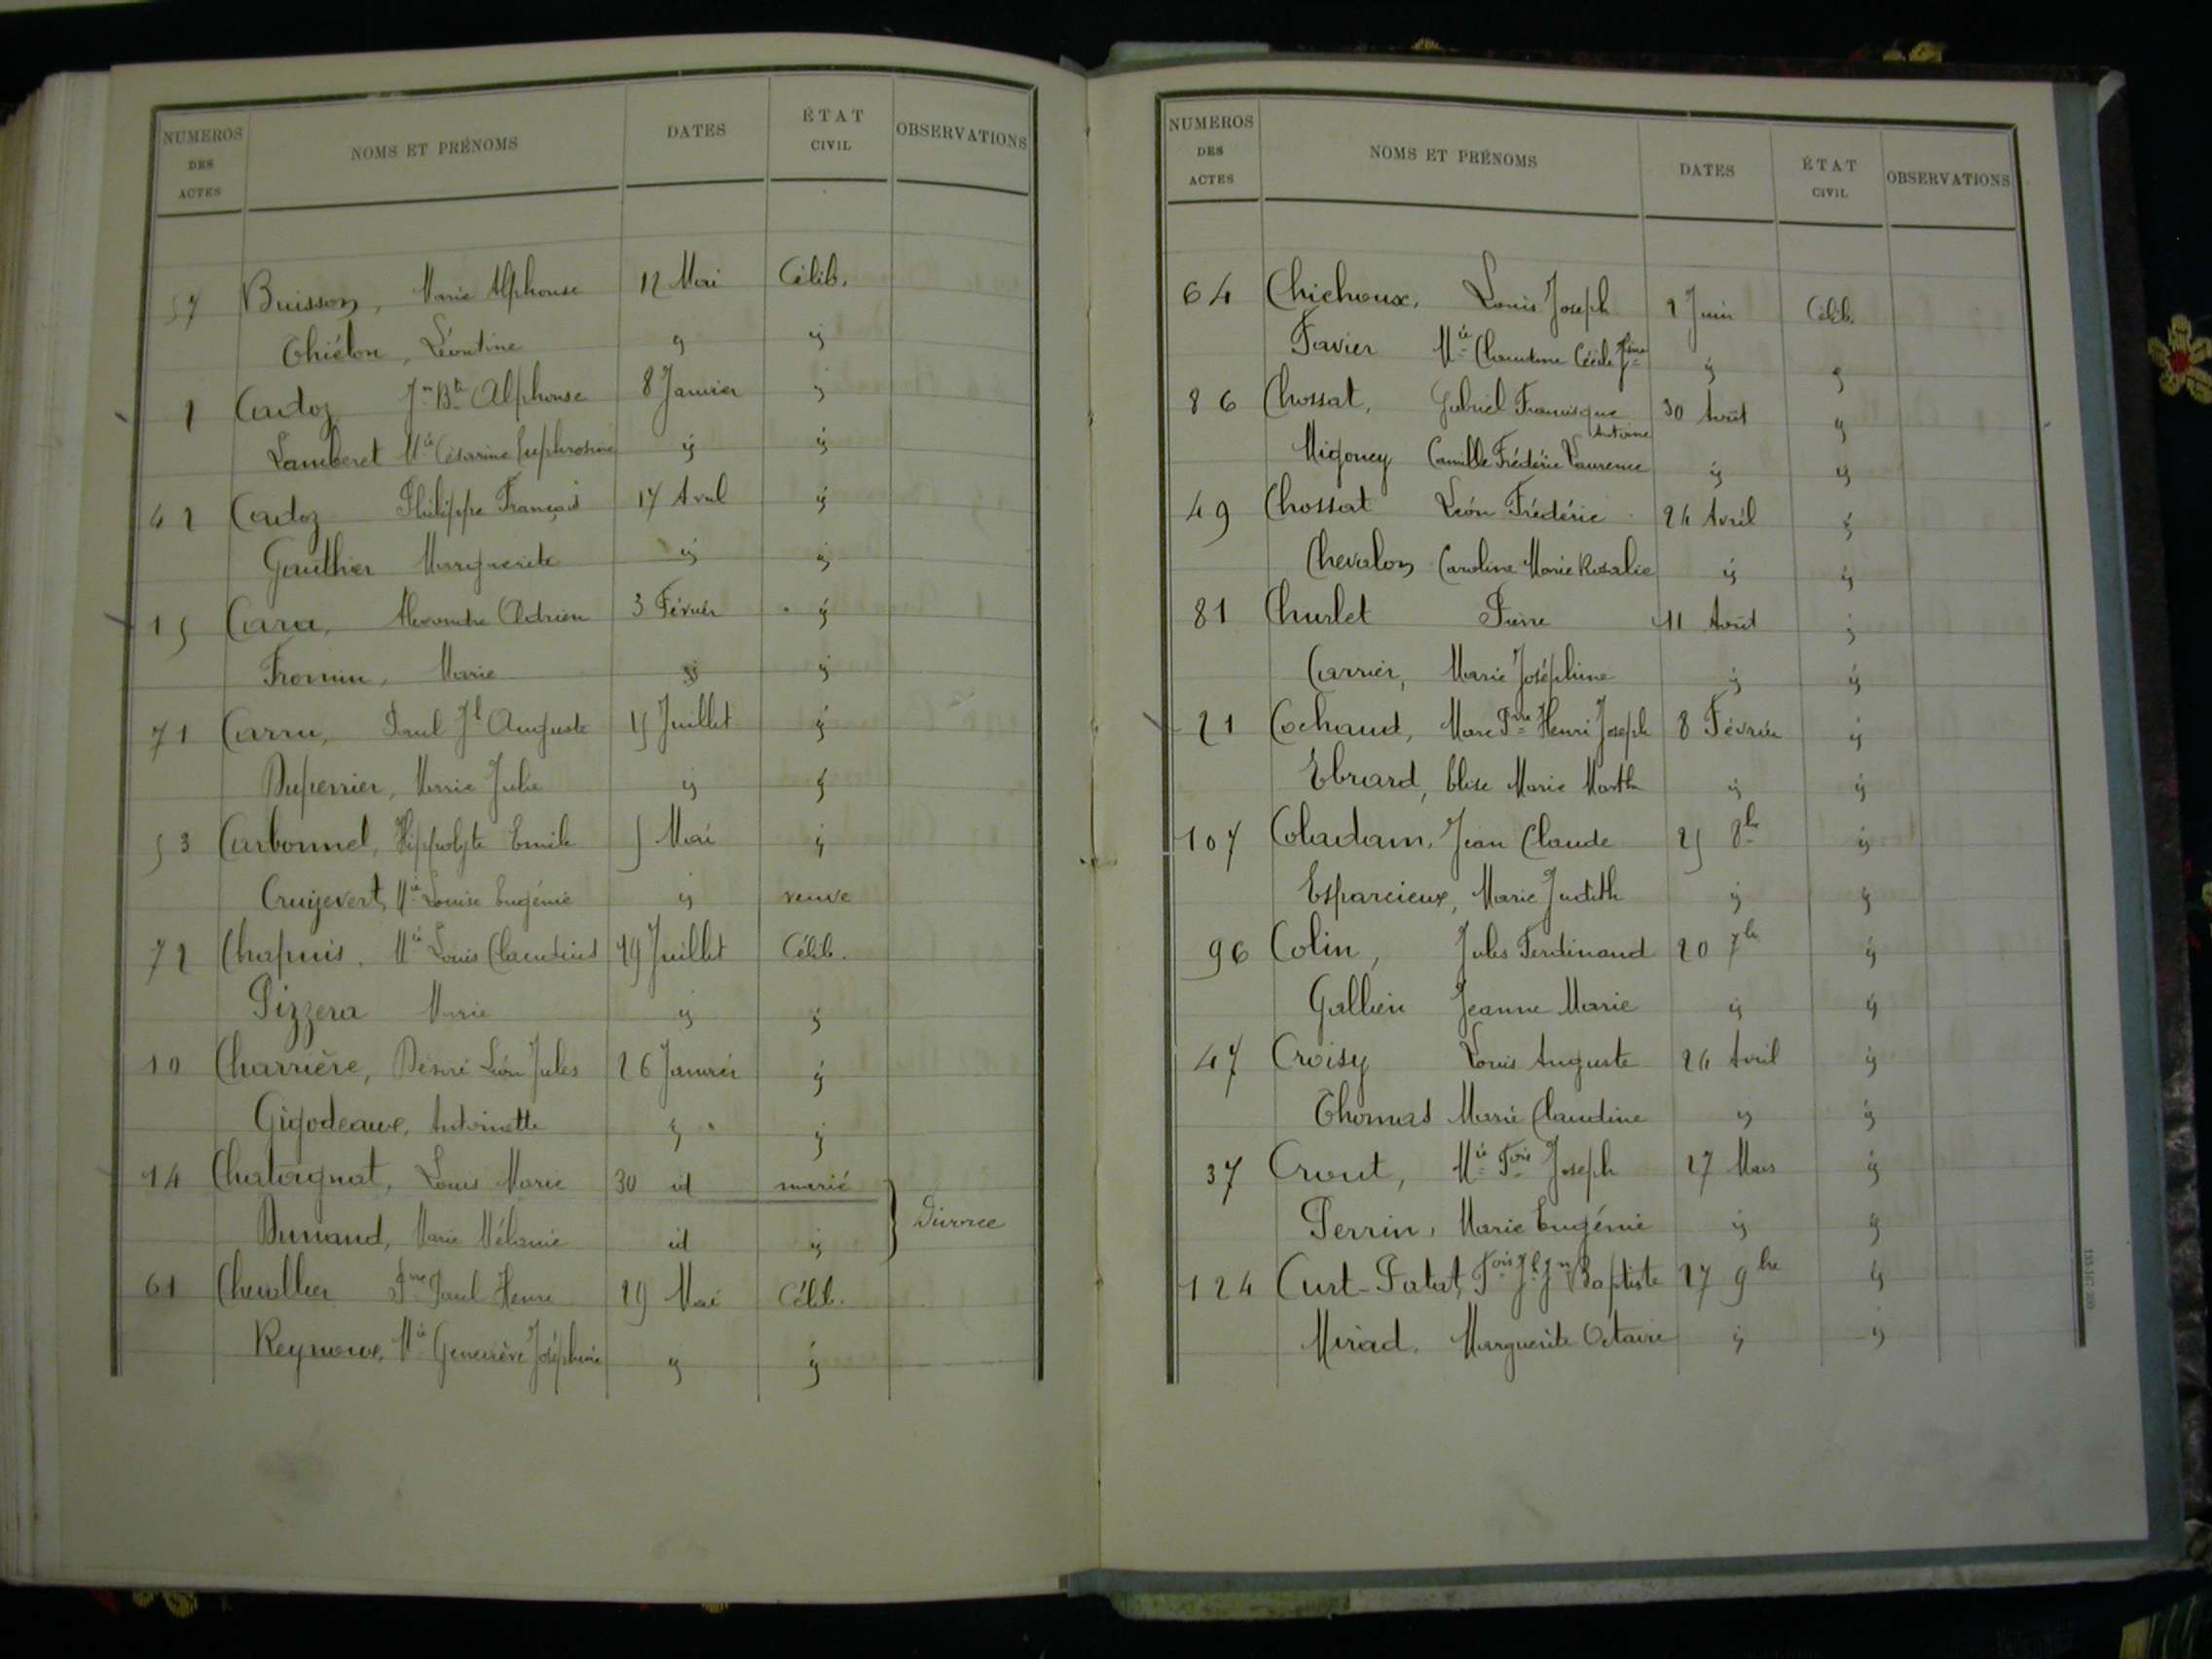 NUMEROS DES ACTES NOMS ET PRÉNOMS DATES ÉTAT CIVIL OBSERVATIONS
57 Buisson, Marie Alphonse 12 Mai Célib.
Thiélon, Léontine ij ij
1 Cadoz Jn Bte Alphonse 8 Janvier ij
Lamberet Mie Césarine Euphrosine ij ij
42 Cadoz Philippe Français 17 Avril ij
Gauthier Marguerite ij ij
15 Cara, Alexandre Adrien 3 Février ij
Fromin, Marie ij ij
71 Carru, Paul Jh Auguste 15 Juillet ij
Duperrier, Marie Julie ij ij
53 Carbonnel, Hippolyte Emile 5 Mai ij
Cruijevert, Mie Louise Eugénie ij veuve
72 Chapuis, Mie Louis Claudius 19 Juillet Célib.
Pizzera Marie ij ij
10 Charrière, Désiré Léon Jules 26 Janvier ij
Gigodeaux, Antoinette ij ij
14 Chatagnat, Louis Marie 30 id marié
Dunand, Marie Mélanie id ij Divorce
61 Chevallier Pre Paul Henri 29 Mai Célib.
Reynoux, Mie Geneviève Joséphine ij ij
NUMEROS DES ACTES NOMS ET PRÉNOMS DATES ÉTAT CIVIL OBSERVATIONS
64 Chichoux, Louis Joseph 2 Juin Célib.
Favier Mie Claudine Cécile Jine ij ij
86 Chossat, Gabriel Francisque Antoine 30 Août ij
Migoney Camille Frédérie Laurence ij ij
49 Chossat Léon Frédéric 24 Avril ij
Chevalon Caroline Marie Rosalie ij ij
81 Churlet Pierre 11 Août ij
Carrier, Marie Joséphine ij ij
21 Cochaud, Marc Pre Henri Joseph 8 Février ij
Ebrard, Elise Marie Marthe ij ij
107 Coladam, Jean Claude 25 8bre ij
Esparcieux, Marie Judith ij ij
96 Colin, Jules Ferdinand 20 7bre ij
Gallien Jeanne Marie ij ij
47 Croisy Louis Auguste 24 Avril ij
Thomas Marie Claudine ij ij
37 Crout, Mie Fois Joseph 27 Mars ij
Perrin, Marie Eugénie ij ij
124 Curt-Patat, Fois Jh Jn Baptiste 27 9bre ij
Miriad, Marguerite Octavie ij ij